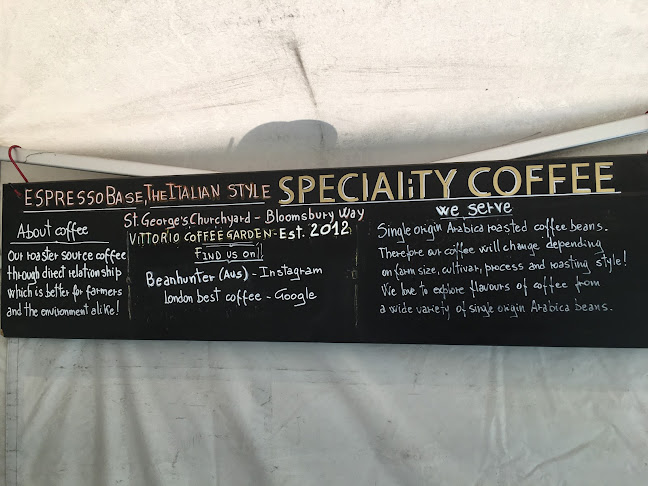 ESPRESSOBASE, THE ITALIAN STYLE SPECIALiTY COFFEE
About coffee
Our roaster source coffee
through direct relationship
which is better for farmers
and the environment alike!
St. George's Churchyard - Bloomsbury Way
VITTORIO COFFEE GARDEN - Est. 2012
FIND US ON!
Beanhunter (Aus) - Instagram
London best coffee - Google
we serve
Single origin Arabica roasted coffee beans.
Therefore our coffee will change depending
on farm size, cultivar, process and roasting style!
We love to explore flavours of coffee from
a wide variety of single origin Arabica beans.